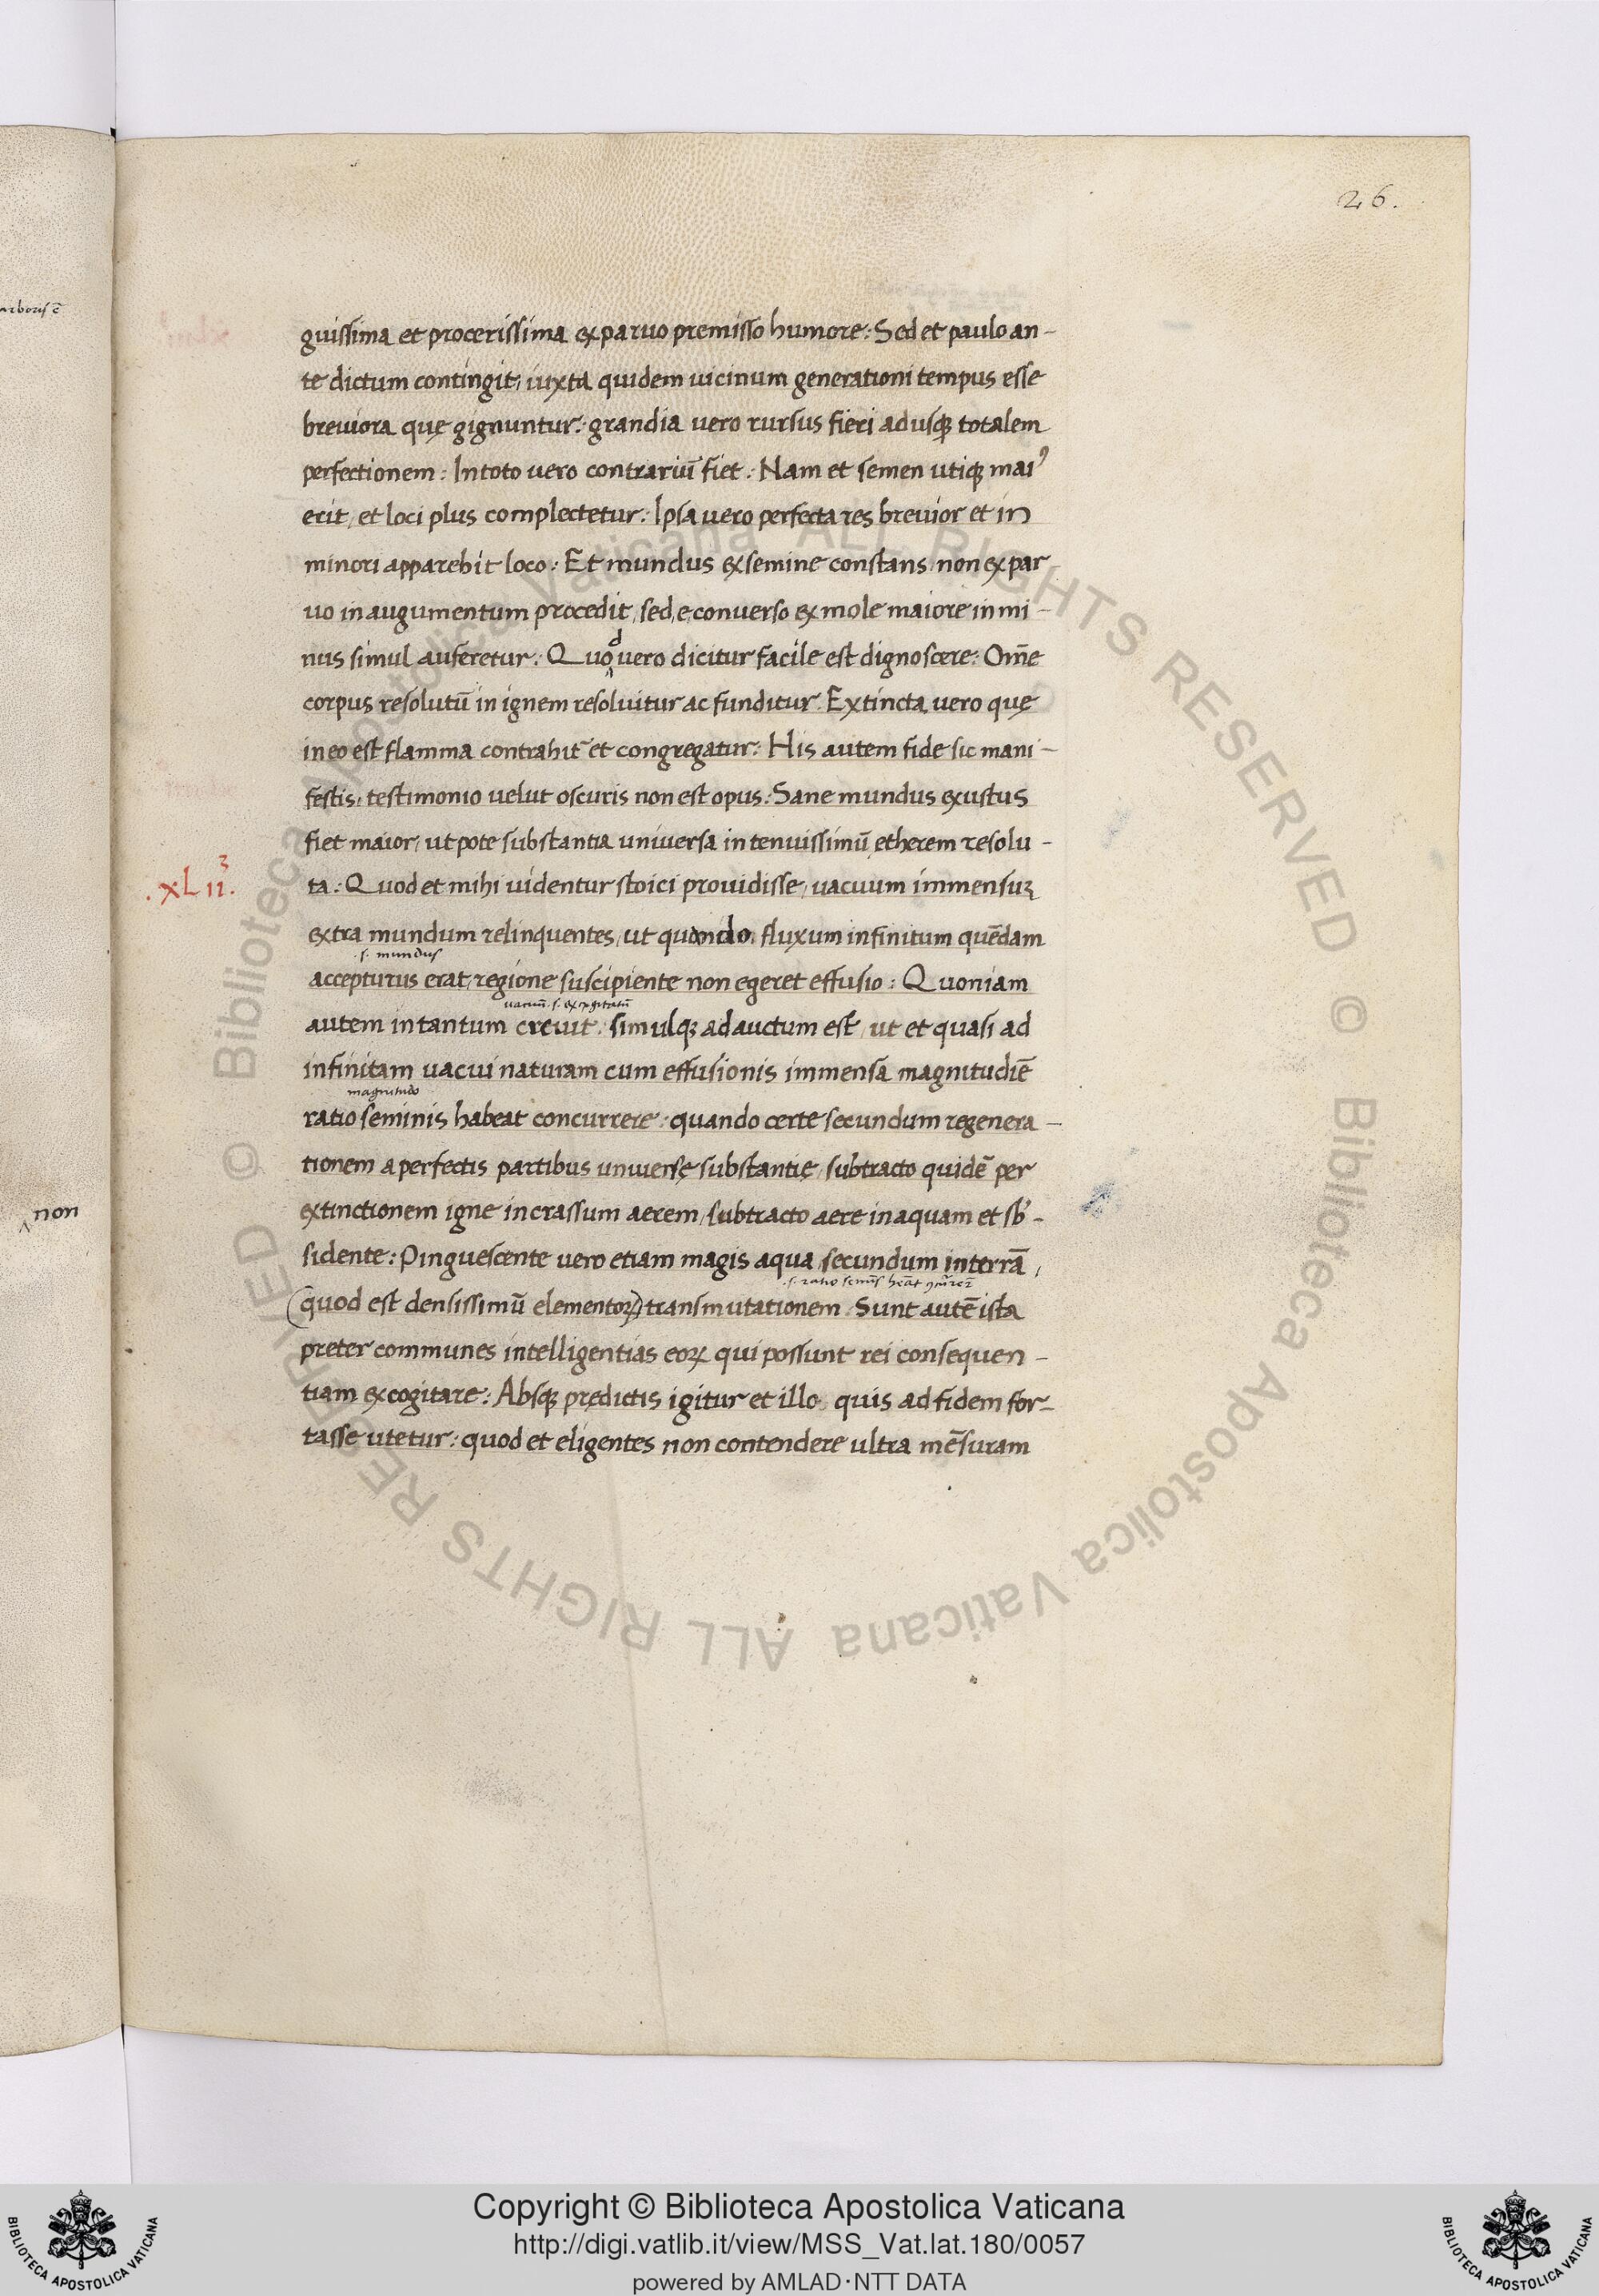 26.
arboris ē
guissima et procerissima ex paruo premisso humore: Sed et paulo an-
te dictum contingit, iuxta quidem uicinum generationi tempus esse
breuiora quę gignuntur: grandia uero rursus fieri adusq; totalem
perfectionem: In toto uero contrariū fiet: Nam et semen utiq; maiꝰ
erit, et loci plus complectetur: Ipsa uero perfecta res breuior et in
minori apparebit loco: Et mundus ex semine constans, non ex par
uo in augumentum procedit, sed, e, conuerso ex mole maiore in mi-
nus simul auferetur: Quod uero dicitur facile est dignoscere: Om̄e
corpus resolutū in ignem resoluitur ac funditur. Extincta uero quę
in eo est flamma contrahit᷑ et congregatur: His autem fide sic mani-
festis, testimonio uelut oscuris non est opus: Sane mundus exustus
fiet maior, ut pote substantia uniuersa in tenuissimū etherem resolu-
.xLii.3
ta: Quod et mihi uidentur stoici prouidisse, uacuum immensuꝫ
extra mundum relinquentes, ut quando fluxum infinitum quēdam
.s. mundus
accepturus erat, regione suscipiente non egeret effusio: Quoniam
uacuū .s. excogitatū
autem in tantum creuit, simulq; adauctum est, ut et quasi ad
infinitam uacui naturam cum effusionis immensa magnitudiē
magnitudo
ratio seminis habeat concurrere: quando certe secundum regenera-
tionem a perfectis partibus uniuersę substantię, subtracto quidē per
non
extinctionem igne in crassum aerem, subtracto aere in aquam et sb̄-
sidente: Pinguescente uero etiam magis aqua, secundum in terrā,
.s. ratio semīs
(quod est densissimū elementoꝝ) transmutationem. Sunt autē ista
preter communes intelligentias eoꝝ qui possunt rei consequen-
tiam excogitare: Absq; prędictis igitur et illo quis ad fidem for-
tasse utetur: quod et eligentes non contendere ultra mēsuram
© Biblioteca Apostolica Vaticana ALL RIGHTS RESERVED © Biblioteca Apostolica Vaticana ALL RIGHTS RESERVED
Copyright © Biblioteca Apostolica Vaticana
http://digi.vatlib.it/view/MSS_Vat.lat.180/0057
powered by AMLAD·NTT DATA
BIBLIOTECA APOSTOLICA VATICANA
BIBLIOTECA APOSTOLICA VATICANA